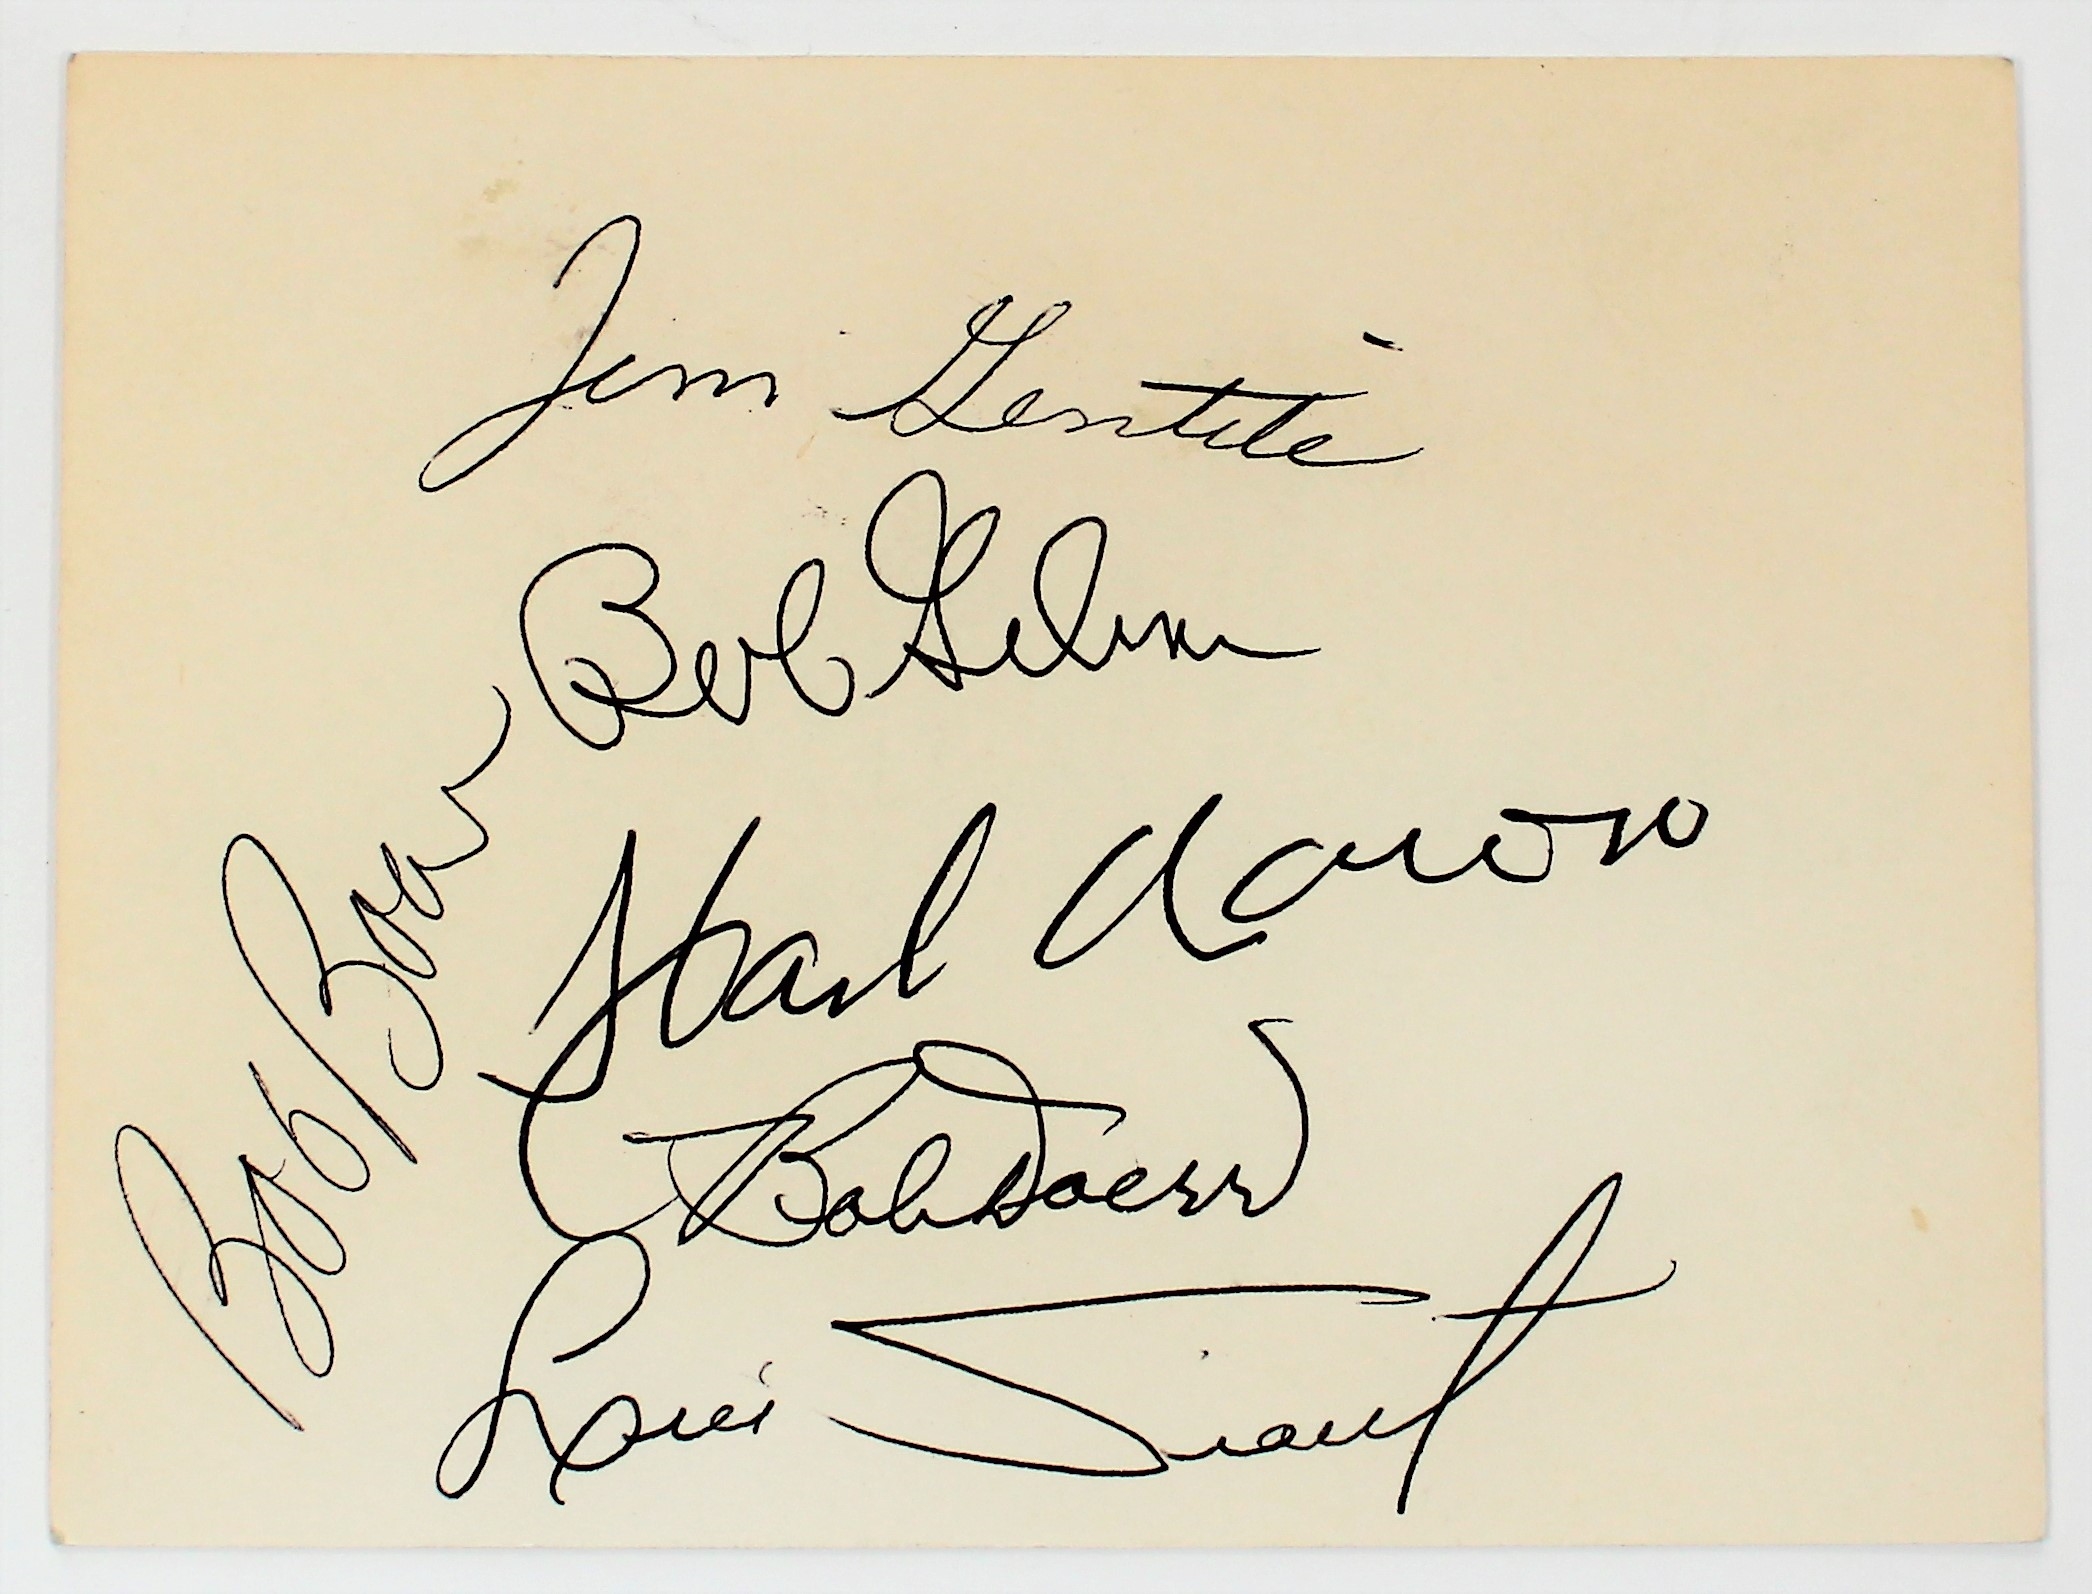 Jim Gentile
Bob Gibson
Hank Aaron
Bob Doerr
Luis Tiant
Bob Boo